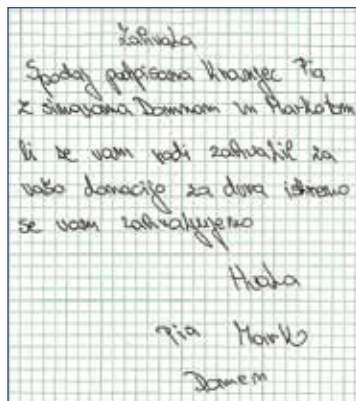 Zahvala
Spodaj podpisana Kranjec Pia
z sinovoma Domnom in Markotom
bi se vam radi zahvalil za
vašo donacijo za drva iskreno
se vam zahvaljujemo
Hvala
Pia Mark
Domen